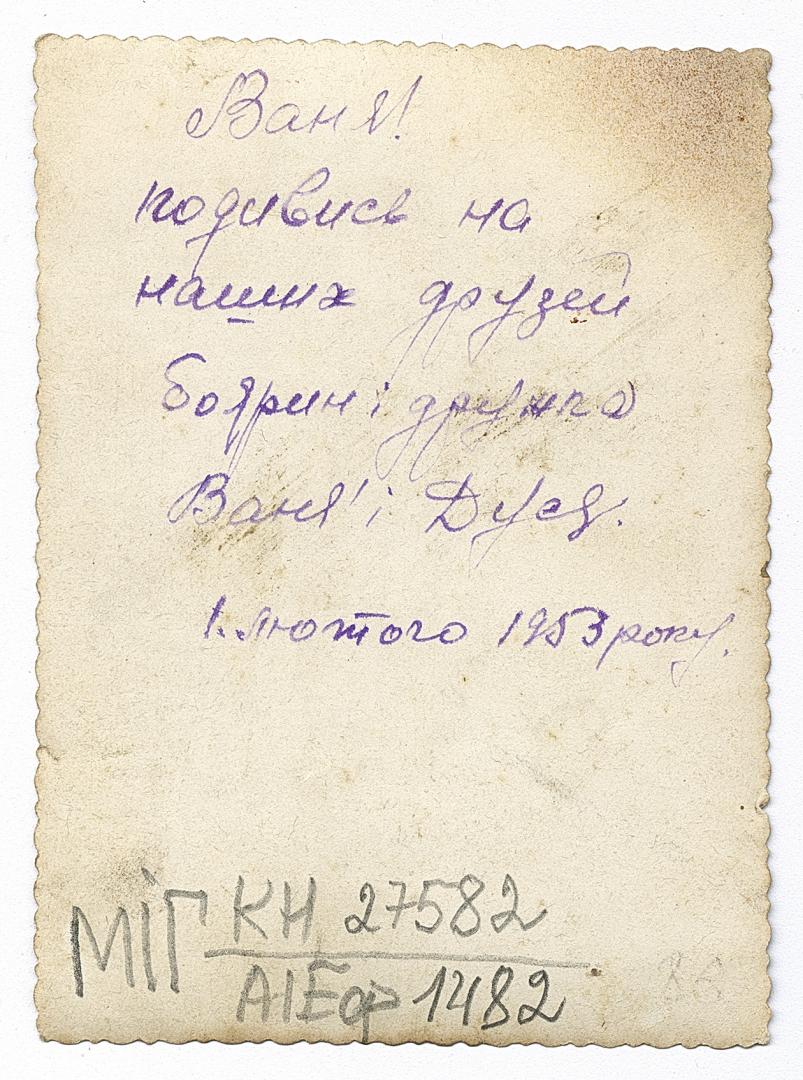 Ваня!
подивись на
наших друзей
боярин і дружка
Ваня і Дуся.
1. лютого 1953 року.
МІГ КН 27582
АІЕф 1482